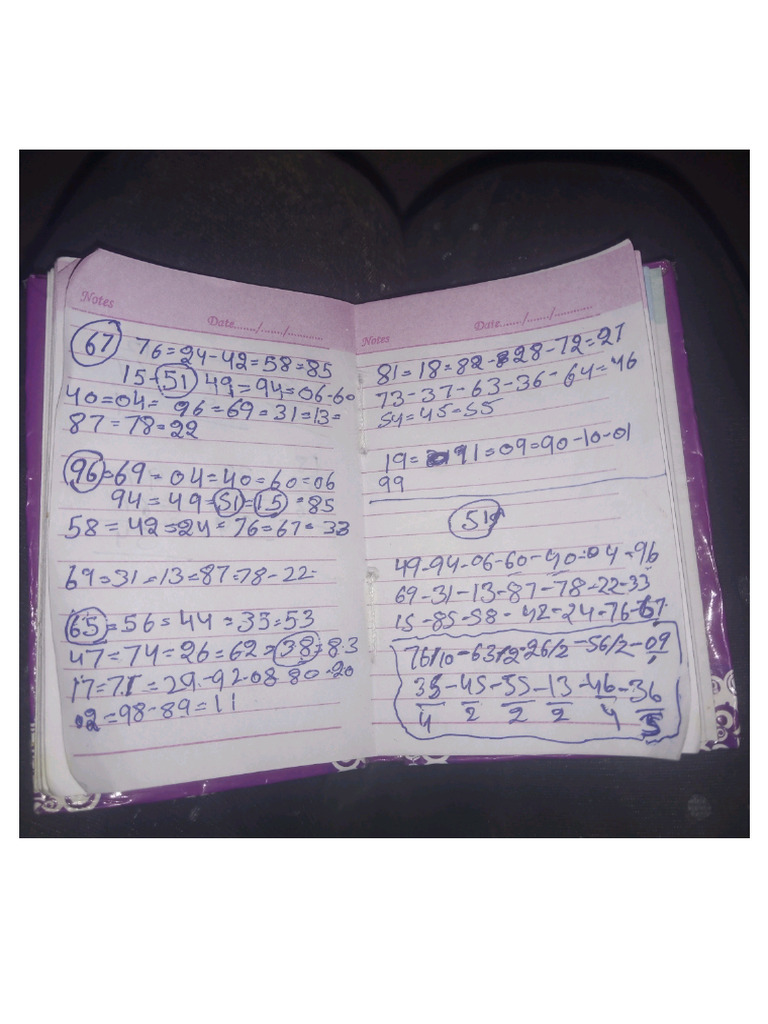 Notes
Date......./......./...........
67 76=24-42=58=85
15-51 49=94=06-60
40=04= 96=69=31=13=
87=78=22
96=69-04=40=60=06
94=49=51=15=85
58=42=24=76=67=33
69=31=13=87=78-22=
65=56=44=35=53
47=74=26=62=38=83
17=71=29-92-08-80-20
02=98-89=11
Notes
Date......./......./...........
81=18=82-28-72=27
73-37-63-36-64=46
54=45=55
19= 91=09=90-10-01
99
51
49-94-06-60-40=04-96
69-31-13-87-78-22-33
15-85-58-42-24-76-67
76/10-63/2-26/2-56/2-09
35-45-55-13-46-36
4 2 2 2 4 5